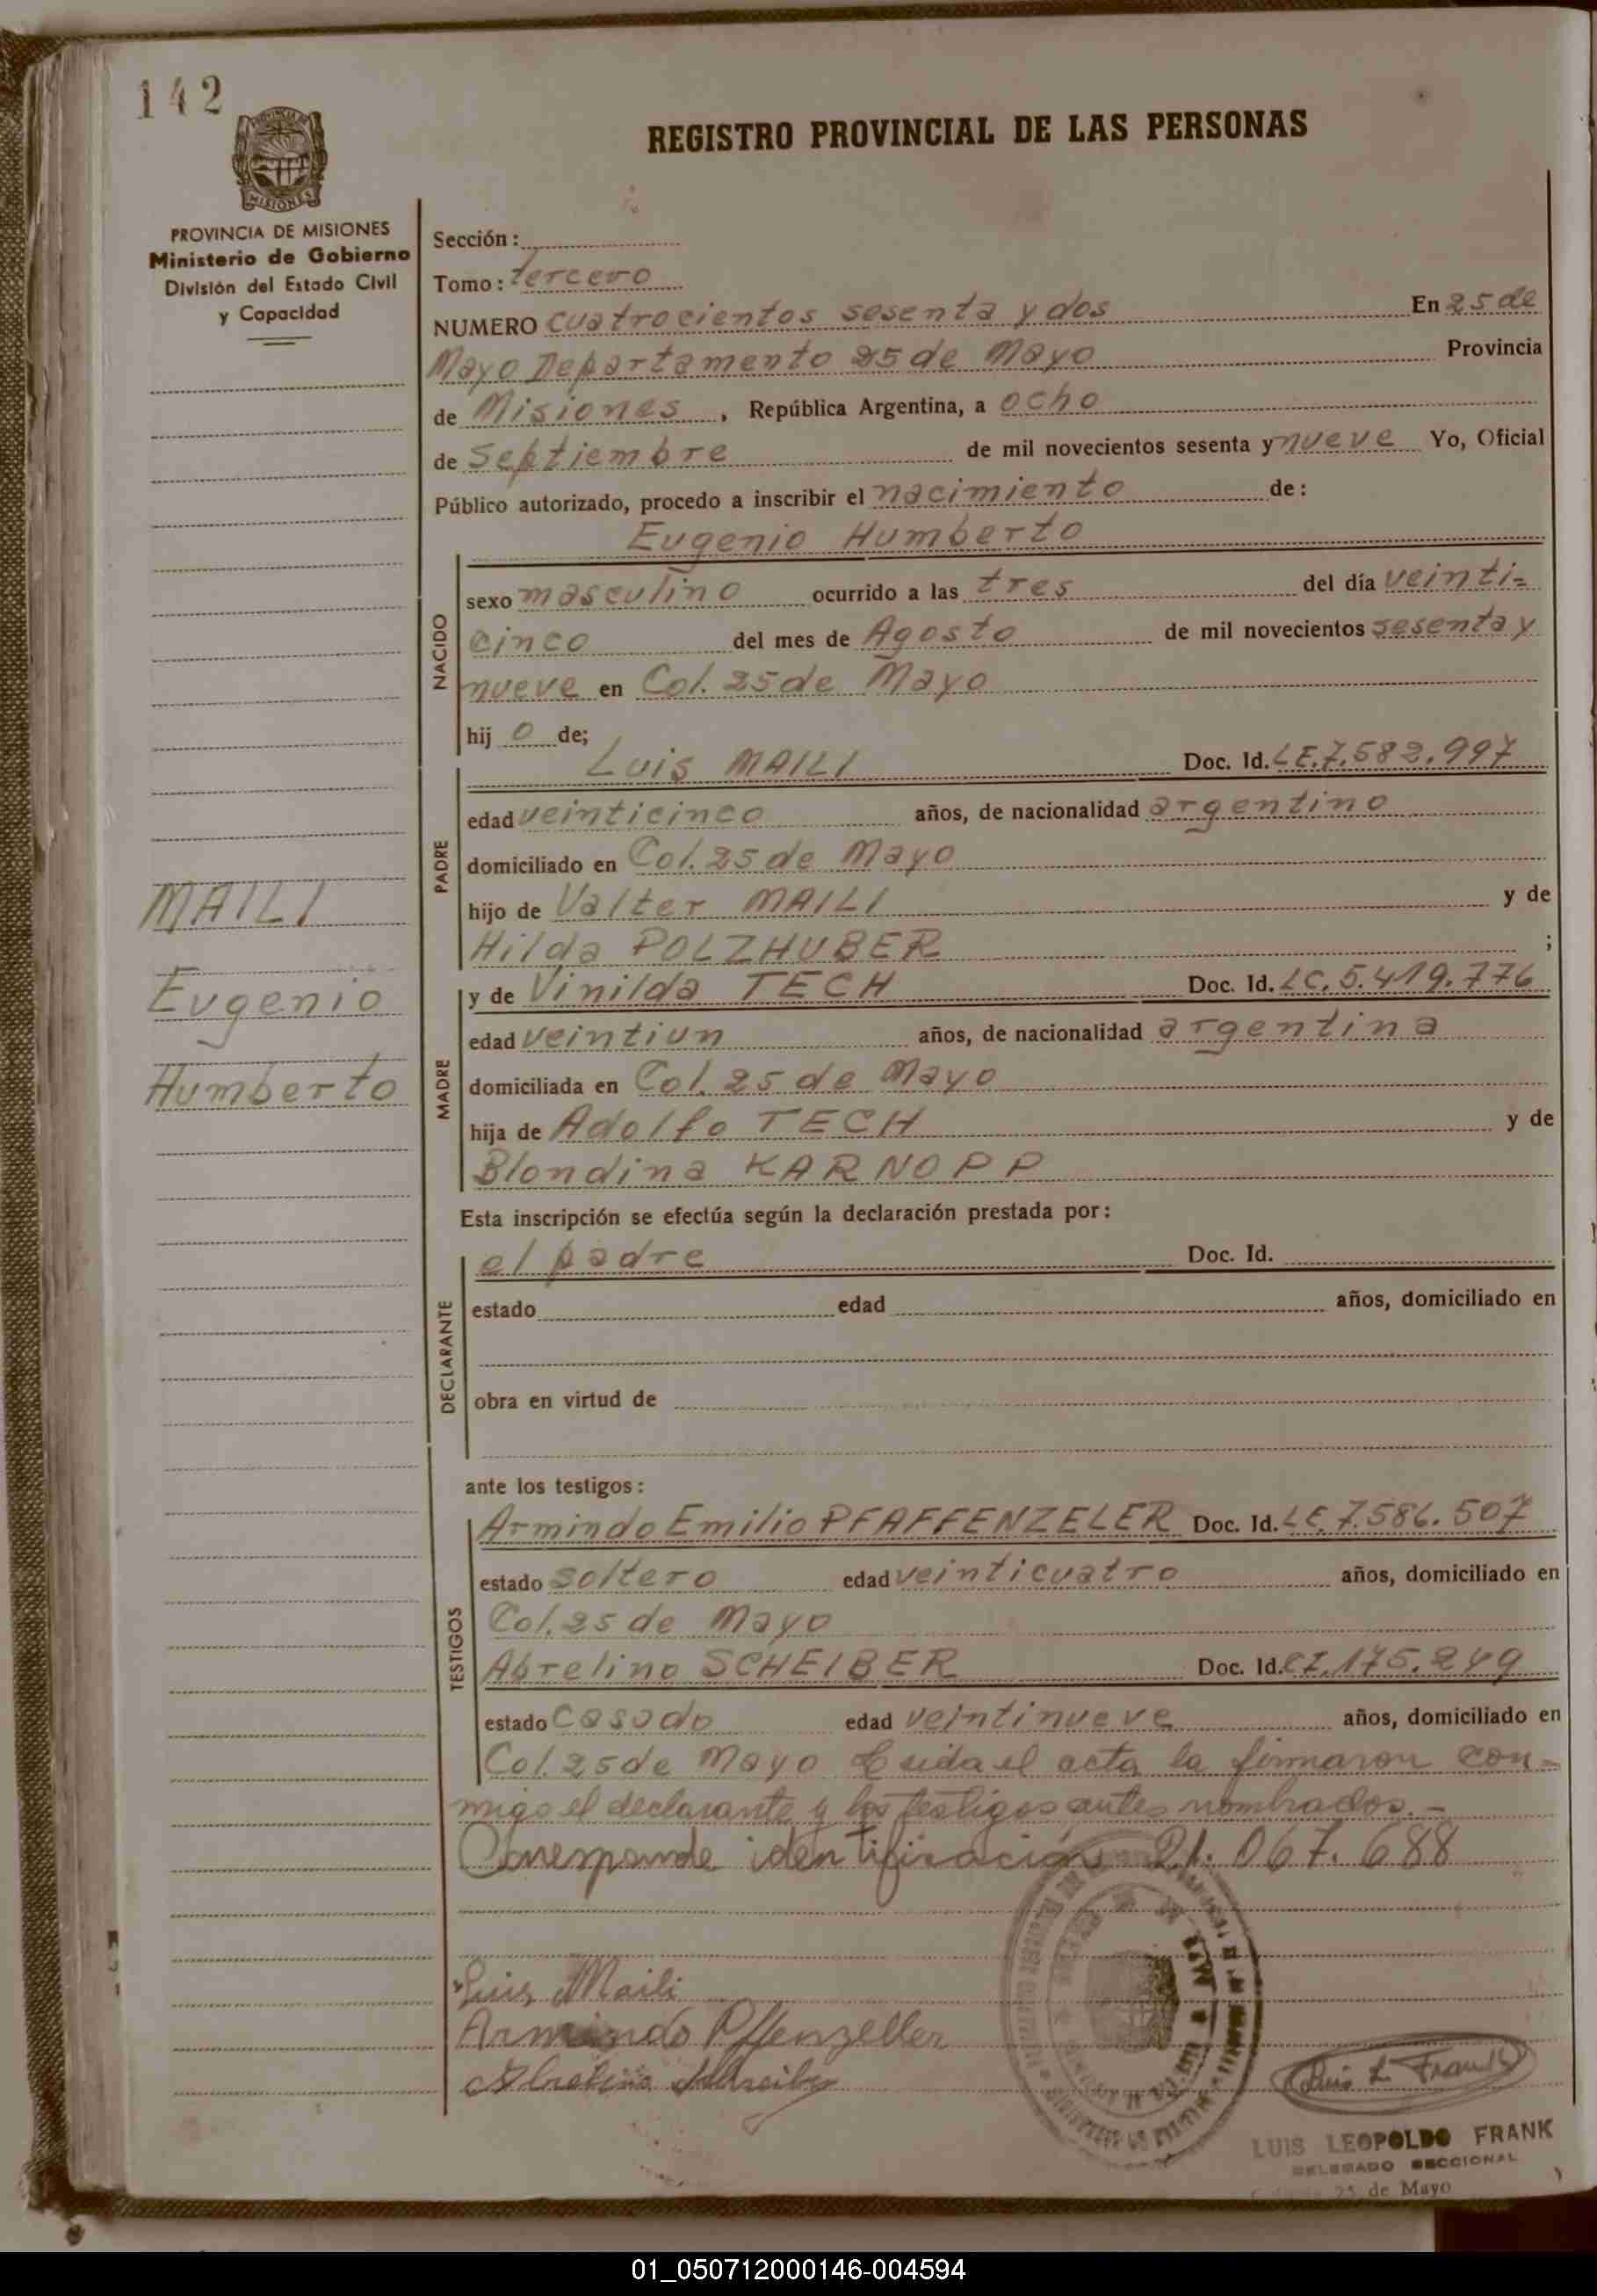 142
REGISTRO PROVINCIAL DE LAS PERSONAS
MISIONES
PROVINCIA DE MISIONES
Ministerio de Gobierno
División del Estado Civil
y Capacidad
Sección:
Tomo: tercero
NUMERO cuatrocientos sesenta y dos En 25 de
Mayo Departamento 25 de Mayo Provincia
de Misiones, República Argentina, a ocho
de Septiembre de mil novecientos sesenta y nueve Yo, Oficial
Público autorizado, procedo a inscribir el nacimiento de:
Eugenio Humberto
NACIDO
sexo masculino ocurrido a las tres del día veinti=
cinco del mes de Agosto de mil novecientos sesenta y
nueve en Col. 25 de Mayo
hij o de;
PADRE
Luis MAILI Doc. Id. LE.7.582.997
edad veinticinco años, de nacionalidad argentino
domiciliado en Col. 25 de Mayo
hijo de Valter MAILI y de
Hilda POLZHUBER ;
MAILI
Eugenio
Humberto
MADRE
y de Vinilda TECH Doc. Id. LC. 5.419.776
edad veintiun años, de nacionalidad argentina
domiciliada en Col. 25 de Mayo
hija de Adolfo TECH y de
Blondina KARNOPP
Esta inscripción se efectúa según la declaración prestada por:
DECLARANTE
el padre Doc. Id.
estado edad años, domiciliado en
obra en virtud de
ante los testigos:
TESTIGOS
Armindo Emilio PFAFFENZELER Doc. Id. LE. 7.586.507
estado soltero edad veinticuatro años, domiciliado en
Col. 25 de Mayo
Abrelino SCHEIBER Doc. Id. CI. 175.249
estado casado edad veintinueve años, domiciliado en
Col. 25 de Mayo Leida el acta la firmaron con-
migo el declarante y los testigos antes nombrados.-
Corresponde identificación 21.067.688
Luis Maili
Armindo Pffenzeller
Luis L. Frank
LUIS LEOPOLDO FRANK
DELEGADO SECCIONAL
25 de Mayo
01_050712000146-004594